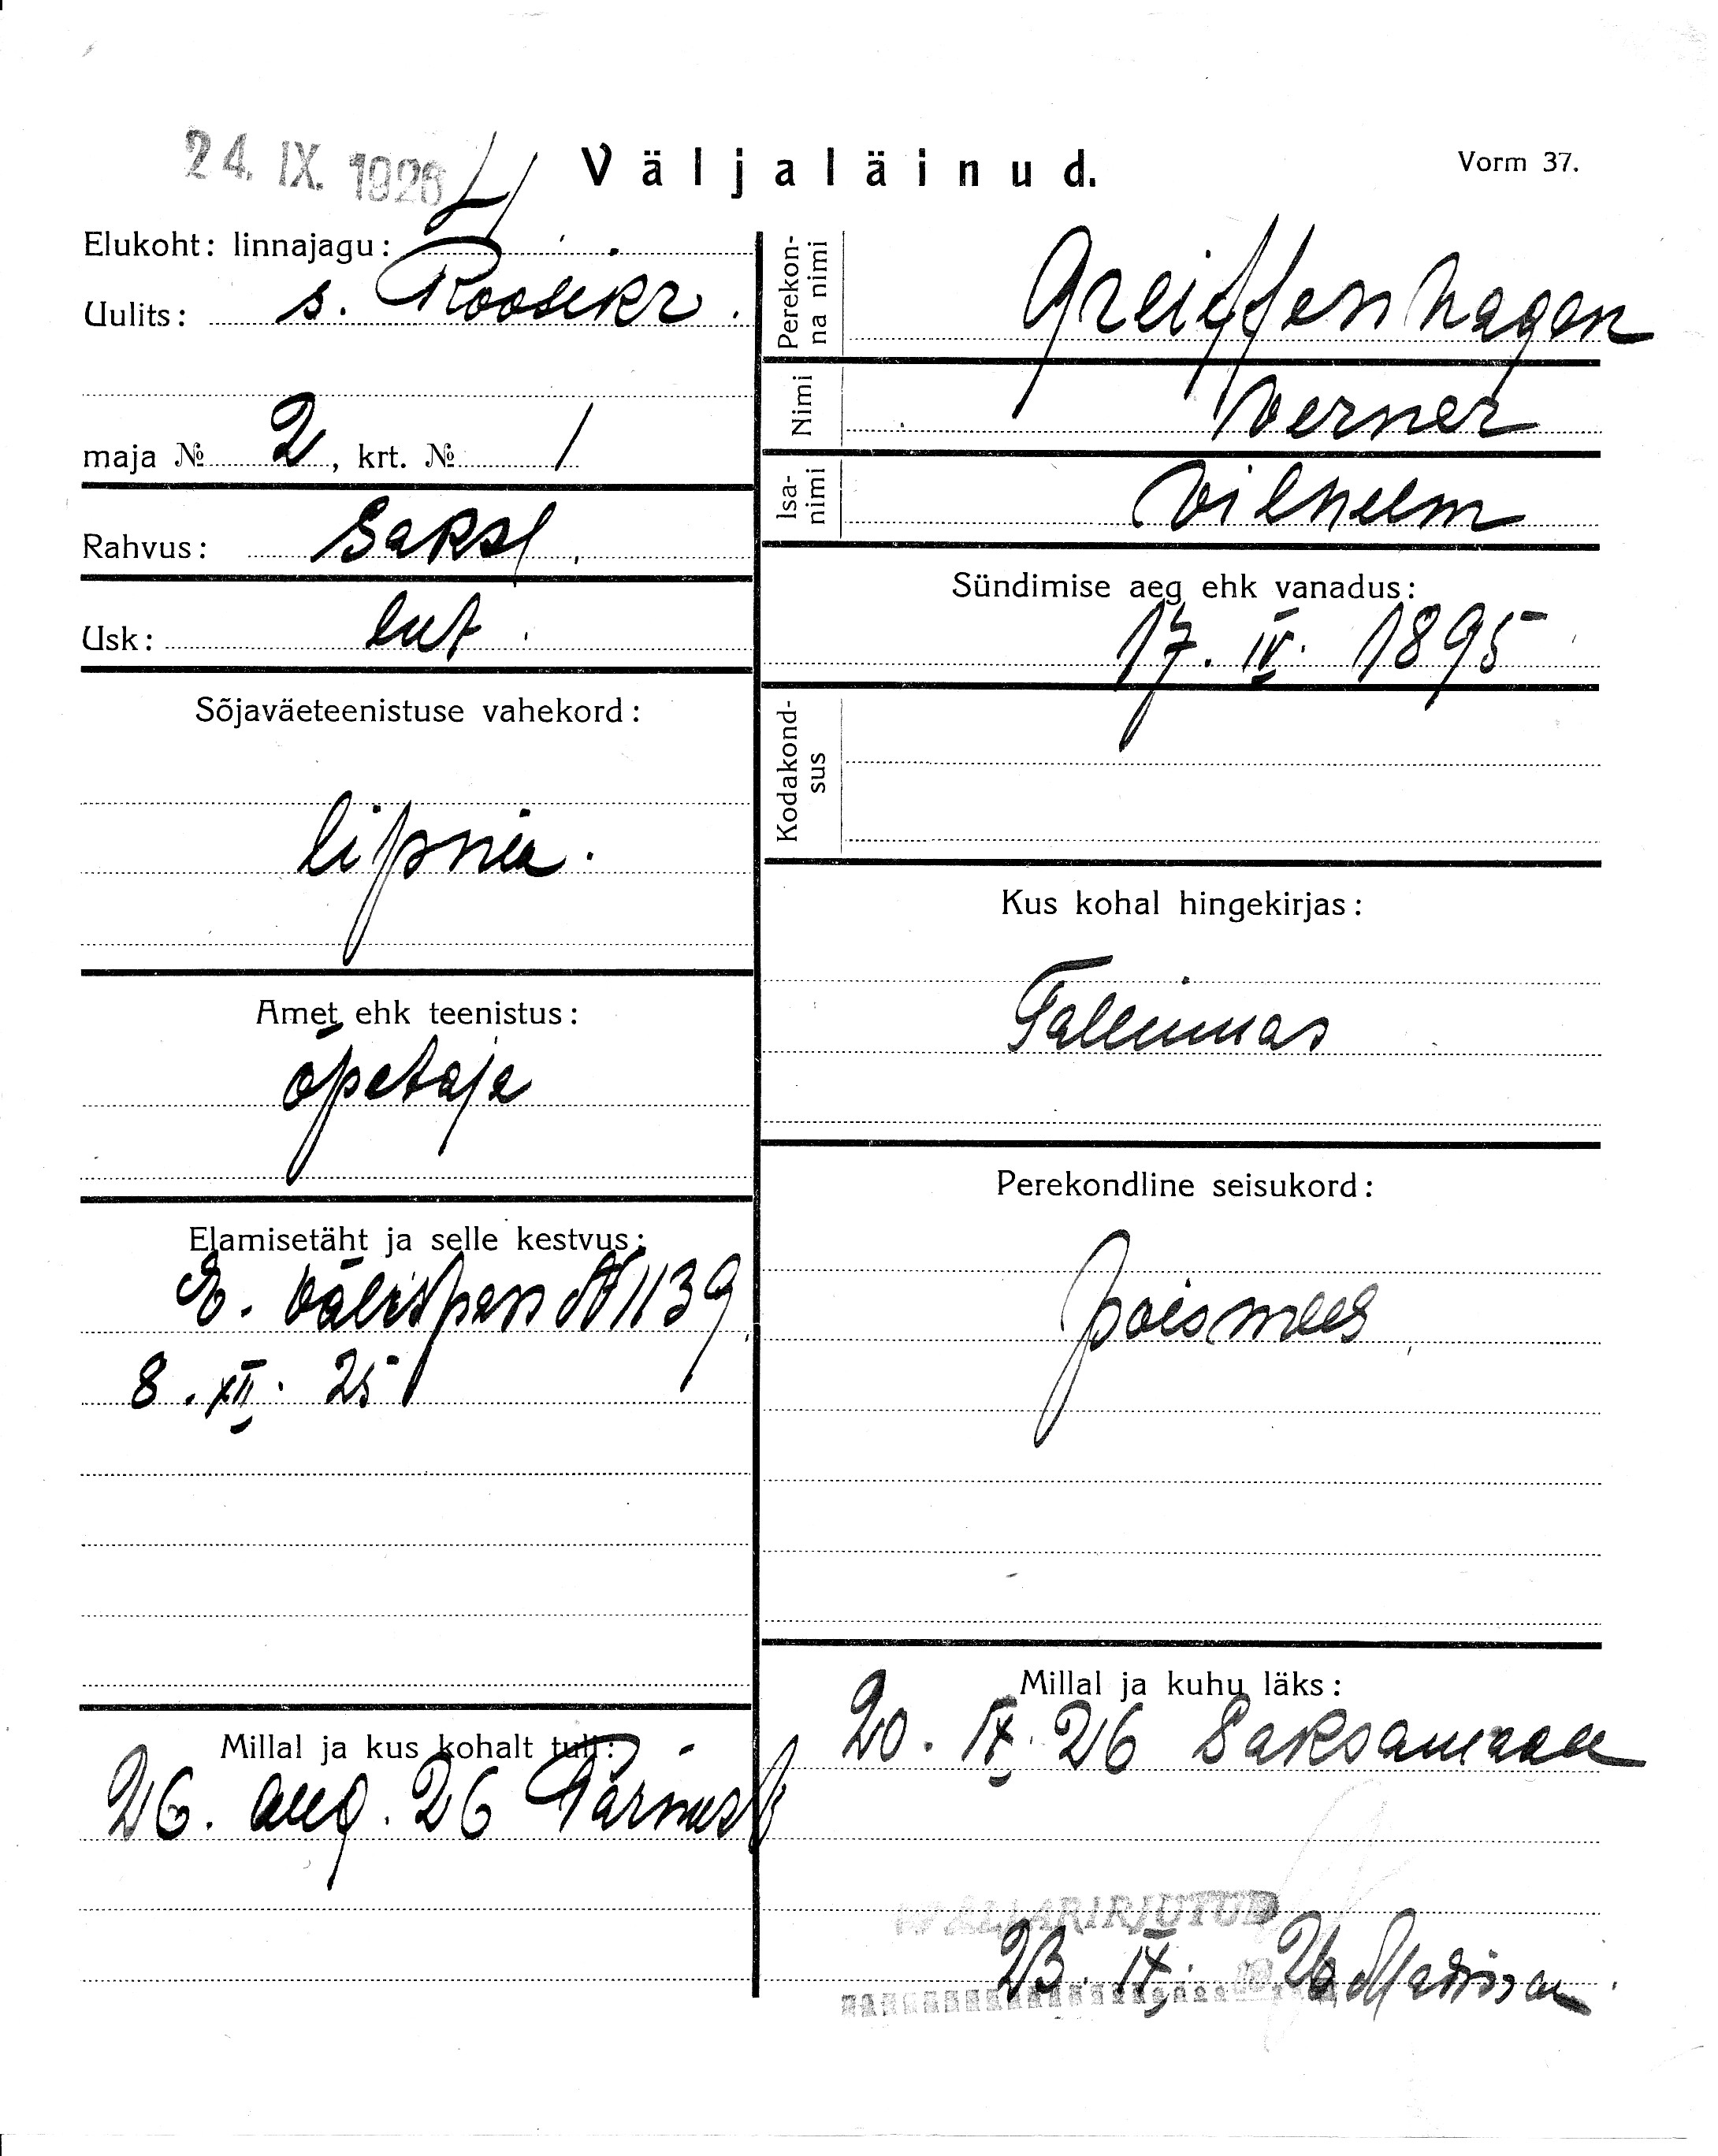 24. IX. 1926
Väljaläinud.
Vorm 37.
Elukoht: linnajagu:
Uulits: s. Roosikr.
maja № 2, krt. № 1
Rahvus: Saksl.
Usk: lut.
Sõjaväeteenistuse vahekord:
lipnik.
Amet ehk teenistus:
õpetaja
Elamisetäht ja selle kestvus:
E. välispass № 1139
8. XII. 25
Millal ja kus kohalt tuli:
26. aug. 26 Pärnust
Perekonna nimi
Greiffenhagen
Nimi
Verner
Isanimi
Vilhelm
Sündimise aeg ehk vanadus:
17. IV. 1895
Kodakondsus
Kus kohal hingekirjas:
Tallinnas
Perekondline seisukord:
poismees
Millal ja kuhu läks:
20. IX. 26 Saksamaale
VÄLJAKIRJUTUD
23. IX. 26